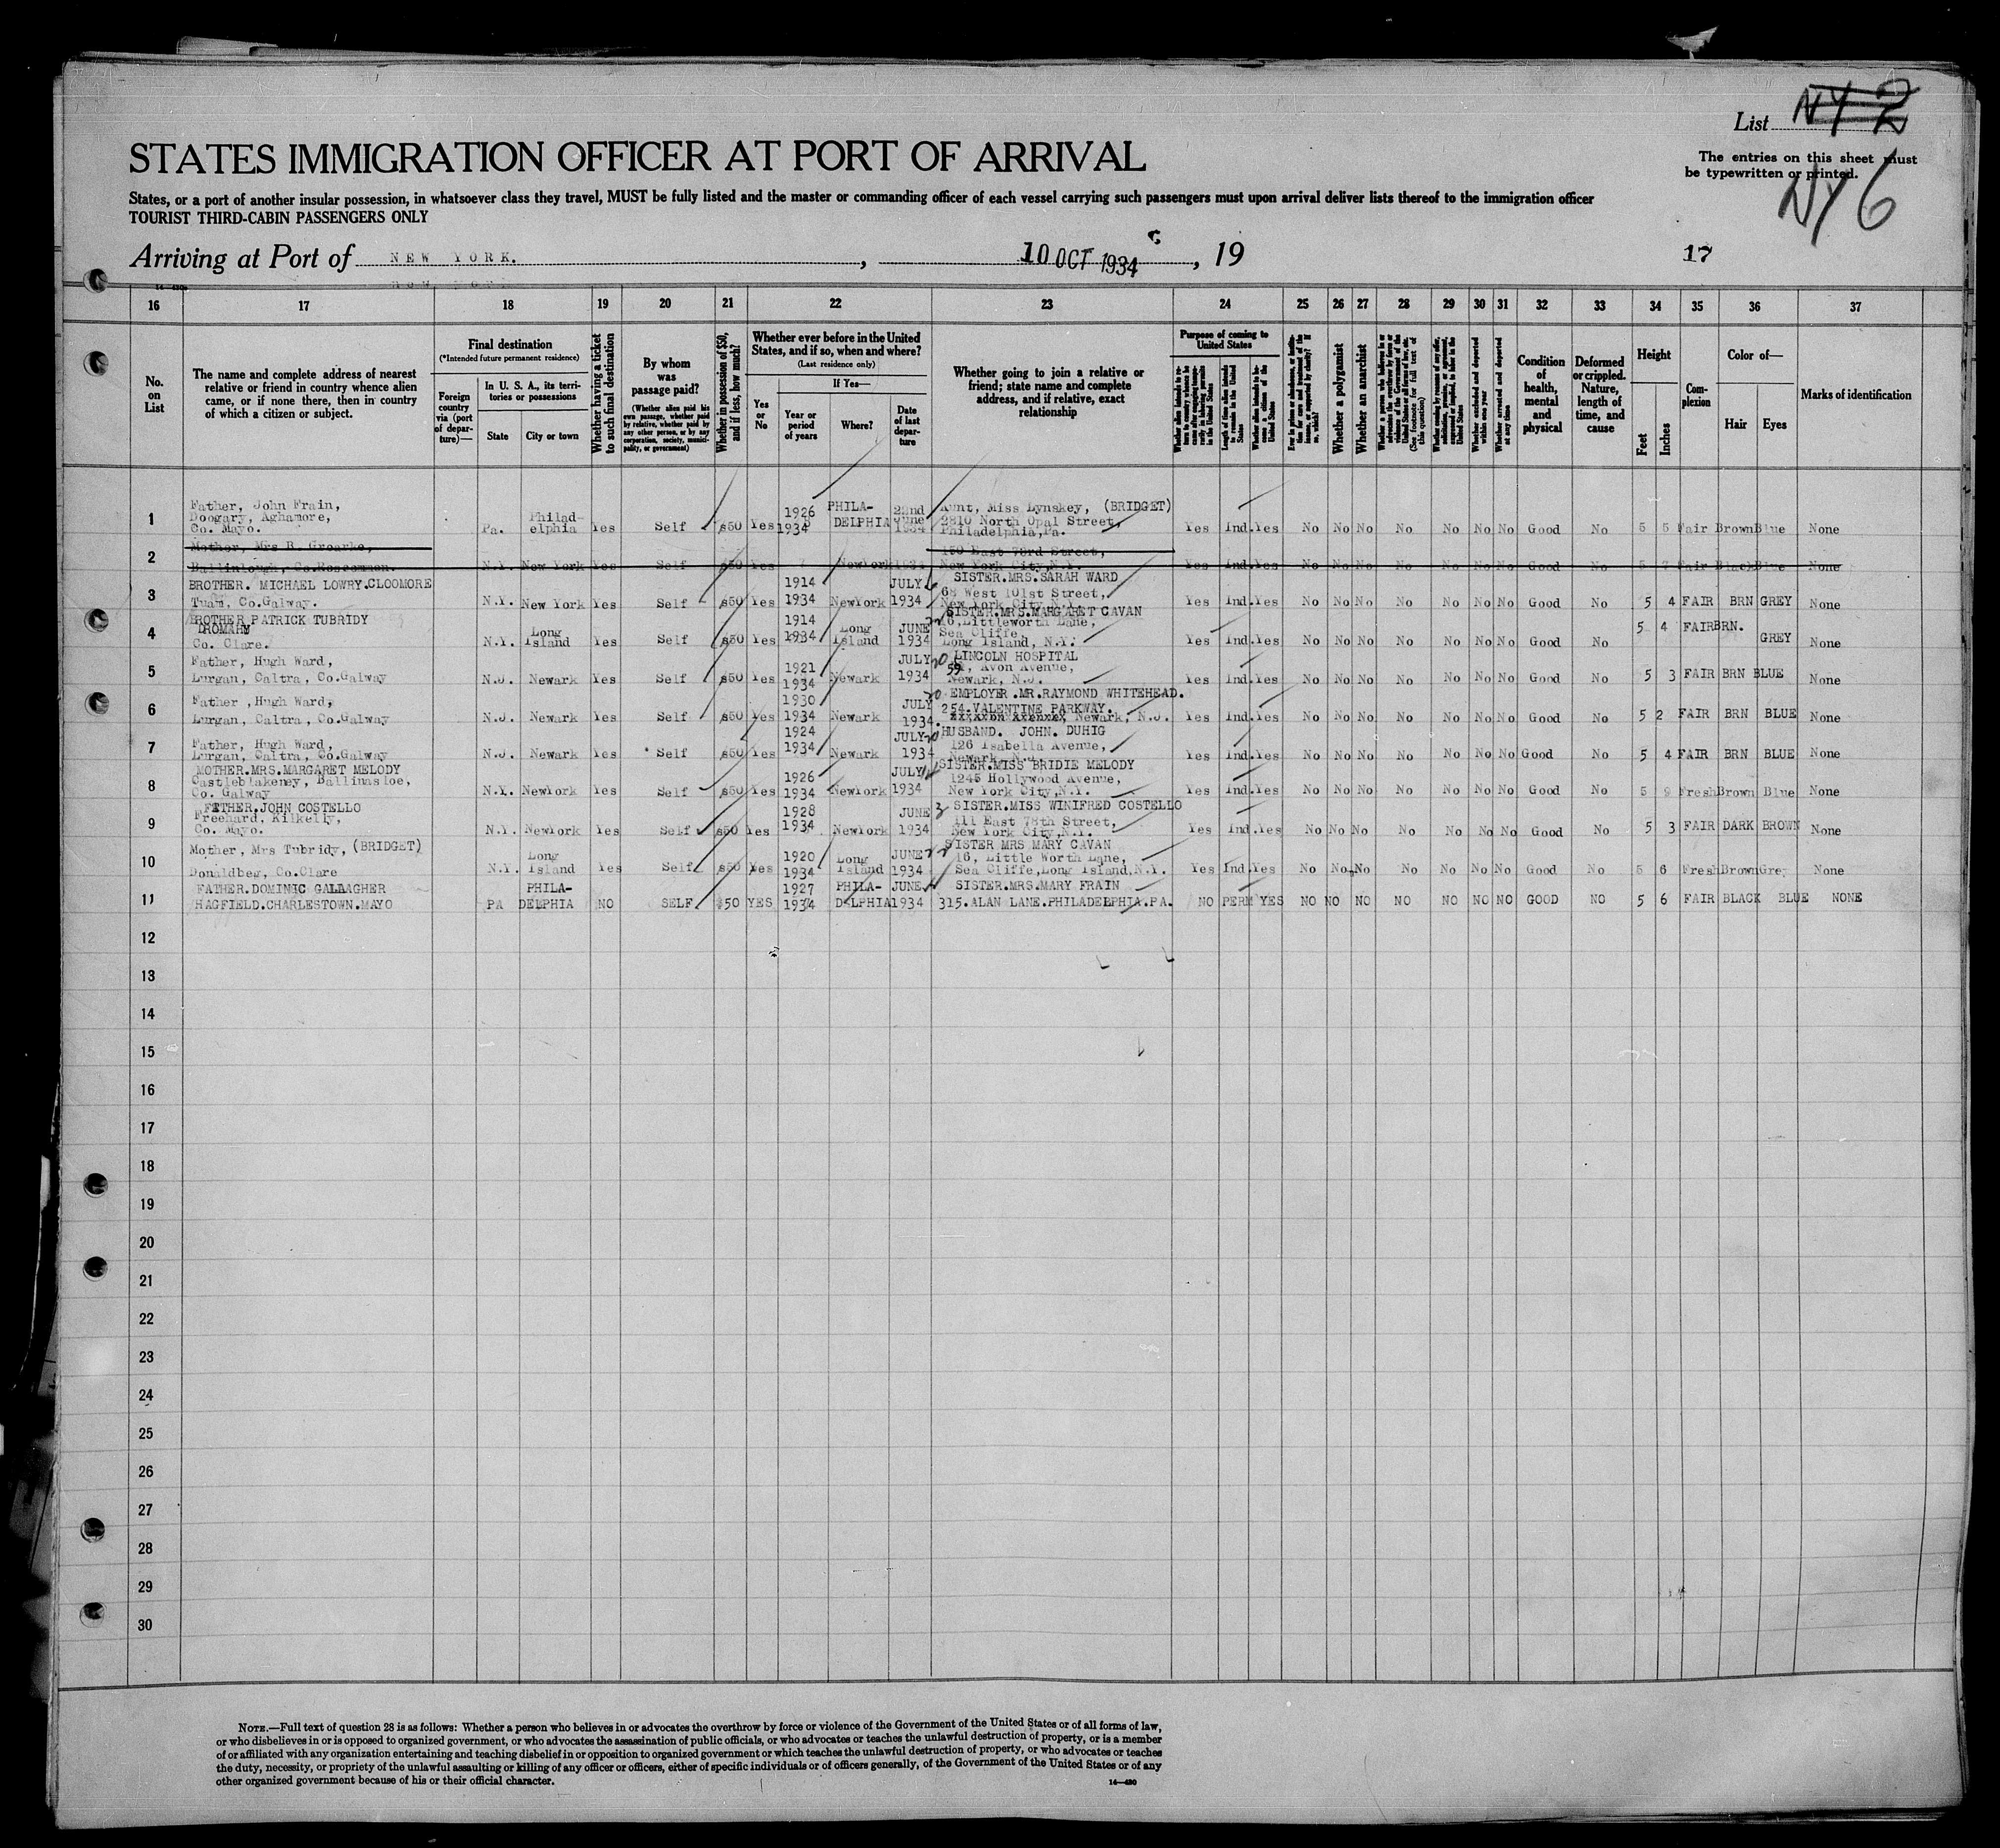 List NY 2
STATES IMMIGRATION OFFICER AT PORT OF ARRIVAL
The entries on this sheet must
be typewritten or printed.
NY 6
States, or a port of another insular possession, in whatsoever class they travel, MUST be fully listed and the master or commanding officer of each vessel carrying such passengers must upon arrival deliver lists thereof to the immigration officer
TOURIST THIRD-CABIN PASSENGERS ONLY
Arriving at Port of NEW YORK. , 10 OCT 1934 , 19 17
16 17 18 19 20 21 22 23 24 25 26 27 28 29 30 31 32 33 34 35 36 37
No. on List
The name and complete address of nearest
relative or friend in country whence alien
came, or if none there, then in country
of which a citizen or subject.
Final destination
(*Intended future permanent residence)
Foreign country via (port of departure)—
In U. S. A., its territories or possessions
State
City or town
Whether having a ticket to such final destination
By whom was passage paid?
(Whether alien paid his own passage, whether paid by relative, whether paid by any other person, or by any corporation, society, municipality, or government)
Whether in possession of $50, and if less, how much?
Whether ever before in the United
States, and if so, when and where?
(Last residence only)
Yes or No
If Yes—
Year or period of years
Where?
Date of last departure
Whether going to join a relative or
friend; state name and complete
address, and if relative, exact
relationship
Purpose of coming to
United States
Length of time alien intends to remain in the United States
Whether a polygamist
Whether an anarchist
(See footnote for full text of this question)
Whether excluded and deported within one year
Whether arrested and deported at any time
Condition of health, mental and physical
Deformed or crippled. Nature, length of time, and cause
Height
Feet
Inches
Complexion
Color of—
Hair
Eyes
Marks of identification
1 Father, John Frain, Doogary, Aghamore, Co. Mayo. Pa. Philadelphia Yes Self $50 Yes 1926 1934 PHILADELPHIA 22nd June 1934 Aunt, Miss Lynskey, (BRIDGET) 2810 North Opal Street, Philadelphia, Pa. Yes Ind. Yes No No No No No No No Good No 5 5 Fair Brown Blue None
2 Mother, Mrs B. Groarke, Ballinlough, Co. Roscommon. N.Y. New York Yes Self $50 Yes NewYork 1934 150 East 73rd Street, New York City, N.Y. Yes Ind. Yes No No No No No No No Good No 5 7 Fair Black Blue None
3 BROTHER. MICHAEL LOWRY. CLOOMORE Tuam, Co. Galway. N.Y. New York Yes Self $50 Yes 1914 1934 NewYork JULY 1934 SISTER. MRS. SARAH WARD 68 West 101st Street, New York City, N.Y. Yes Ind. Yes No No No No No No No Good No 5 4 FAIR BRN GREY None
4 BROTHER PATRICK TUBRIDY DROMARY Co. Clare. N.Y. Long Island Yes Self $50 Yes 1914 1934 Long Island JUNE 22 1934 SISTER. MRS. MARGARET CAVAN 16, Littleworth Lane, Sea Cliffe, Long Island, N.Y. Yes Ind. Yes No No No No No No No Good No 5 4 FAIR BRN. GREY None
5 Father, Hugh Ward, Lurgan, Caltra, Co. Galway N.J. Newark Yes Self $50 Yes 1921 1934 Newark JULY 20 1934 LINCOLN HOSPITAL 59, Avon Avenue, Newark, N.J. Yes Ind. Yes No No No No No No No Good No 5 3 FAIR BRN BLUE None
6 Father, Hugh Ward, Lurgan, Caltra, Co. Galway N.J. Newark Yes Self $50 Yes 1930 1934 Newark JULY 20 1934. EMPLOYER. MR. RAYMOND WHITEHEAD. 254. VALENTINE PARKWAY. Newark, N.J. Yes Ind. Yes No No No No No No No Good No 5 2 FAIR BRN BLUE None
7 Father, Hugh Ward, Lurgan, Caltra, Co. Galway N.J. Newark Yes Self $50 Yes 1924 1934 Newark JULY 20 1934 HUSBAND. JOHN. DUHIG 126 Isabella Avenue, Newark, N.J. Yes Ind. Yes No No No No No No No Good No 5 4 FAIR BRN BLUE None
8 MOTHER. MRS. MARGARET MELODY Castleblakeney, Ballinasloe, Co. Galway N.Y. NewYork Yes Self $50 Yes 1926 1934 NewYork JULY 1934 SISTER. MISS BRIDIE MELODY 1245 Hollywood Avenue, New York City, N.Y. Yes Ind. Yes No No No No No No No Good No 5 9 Fresh Brown Blue None
9 FATHER. JOHN COSTELLO Freehard, Kilkelly, Co. Mayo. N.Y. NewYork Yes Self $50 Yes 1928 1934 NewYork JUNE 3 1934 SISTER. MISS WINIFRED COSTELLO 111 East 78th Street, New York City, N.Y. Yes Ind. Yes No No No No No No No Good No 5 3 FAIR DARK BROWN None
10 Mother, Mrs Tubridy, (BRIDGET) Donaldbeg, Co. Clare N.Y. Long Island Yes Self $50 Yes 1920 1934 Long Island JUNE 22 1934 SISTER MRS MARY CAVAN 16, Little Worth Lane, Sea Cliffe, Long Island, N.Y. Yes Ind. Yes No No No No No No No Good No 5 6 Fresh Brown Grey None
11 FATHER. DOMINIC GALLAGHER HAGFIELD. CHARLESTOWN. MAYO PA PHILADELPHIA NO SELF $50 YES 1927 1934 PHILADELPHIA JUNE 1934 SISTER. MRS. MARY FRAIN 315. ALAN LANE. PHILADELPHIA. PA. NO PERM YES NO NO NO NO NO NO NO GOOD NO 5 6 FAIR BLACK BLUE NONE
12
13
14
15
16
17
18
19
20
21
22
23
24
25
26
27
28
29
30
NOTE.—Full text of question 28 is as follows: Whether a person who believes in or advocates the overthrow by force or violence of the Government of the United States or of all forms of law,
or who disbelieves in or is opposed to organized government, or who advocates the assassination of public officials, or who advocates or teaches the unlawful destruction of property, or is a member
of or affiliated with any organization entertaining and teaching disbelief in or opposition to organized government or which teaches the unlawful destruction of property, or who advocates or teaches
the duty, necessity, or propriety of the unlawful assaulting or killing of any officer or officers, either of specific individuals or of officers generally, of the Government of the United States or of any
other organized government because of his or their official character.
14—430